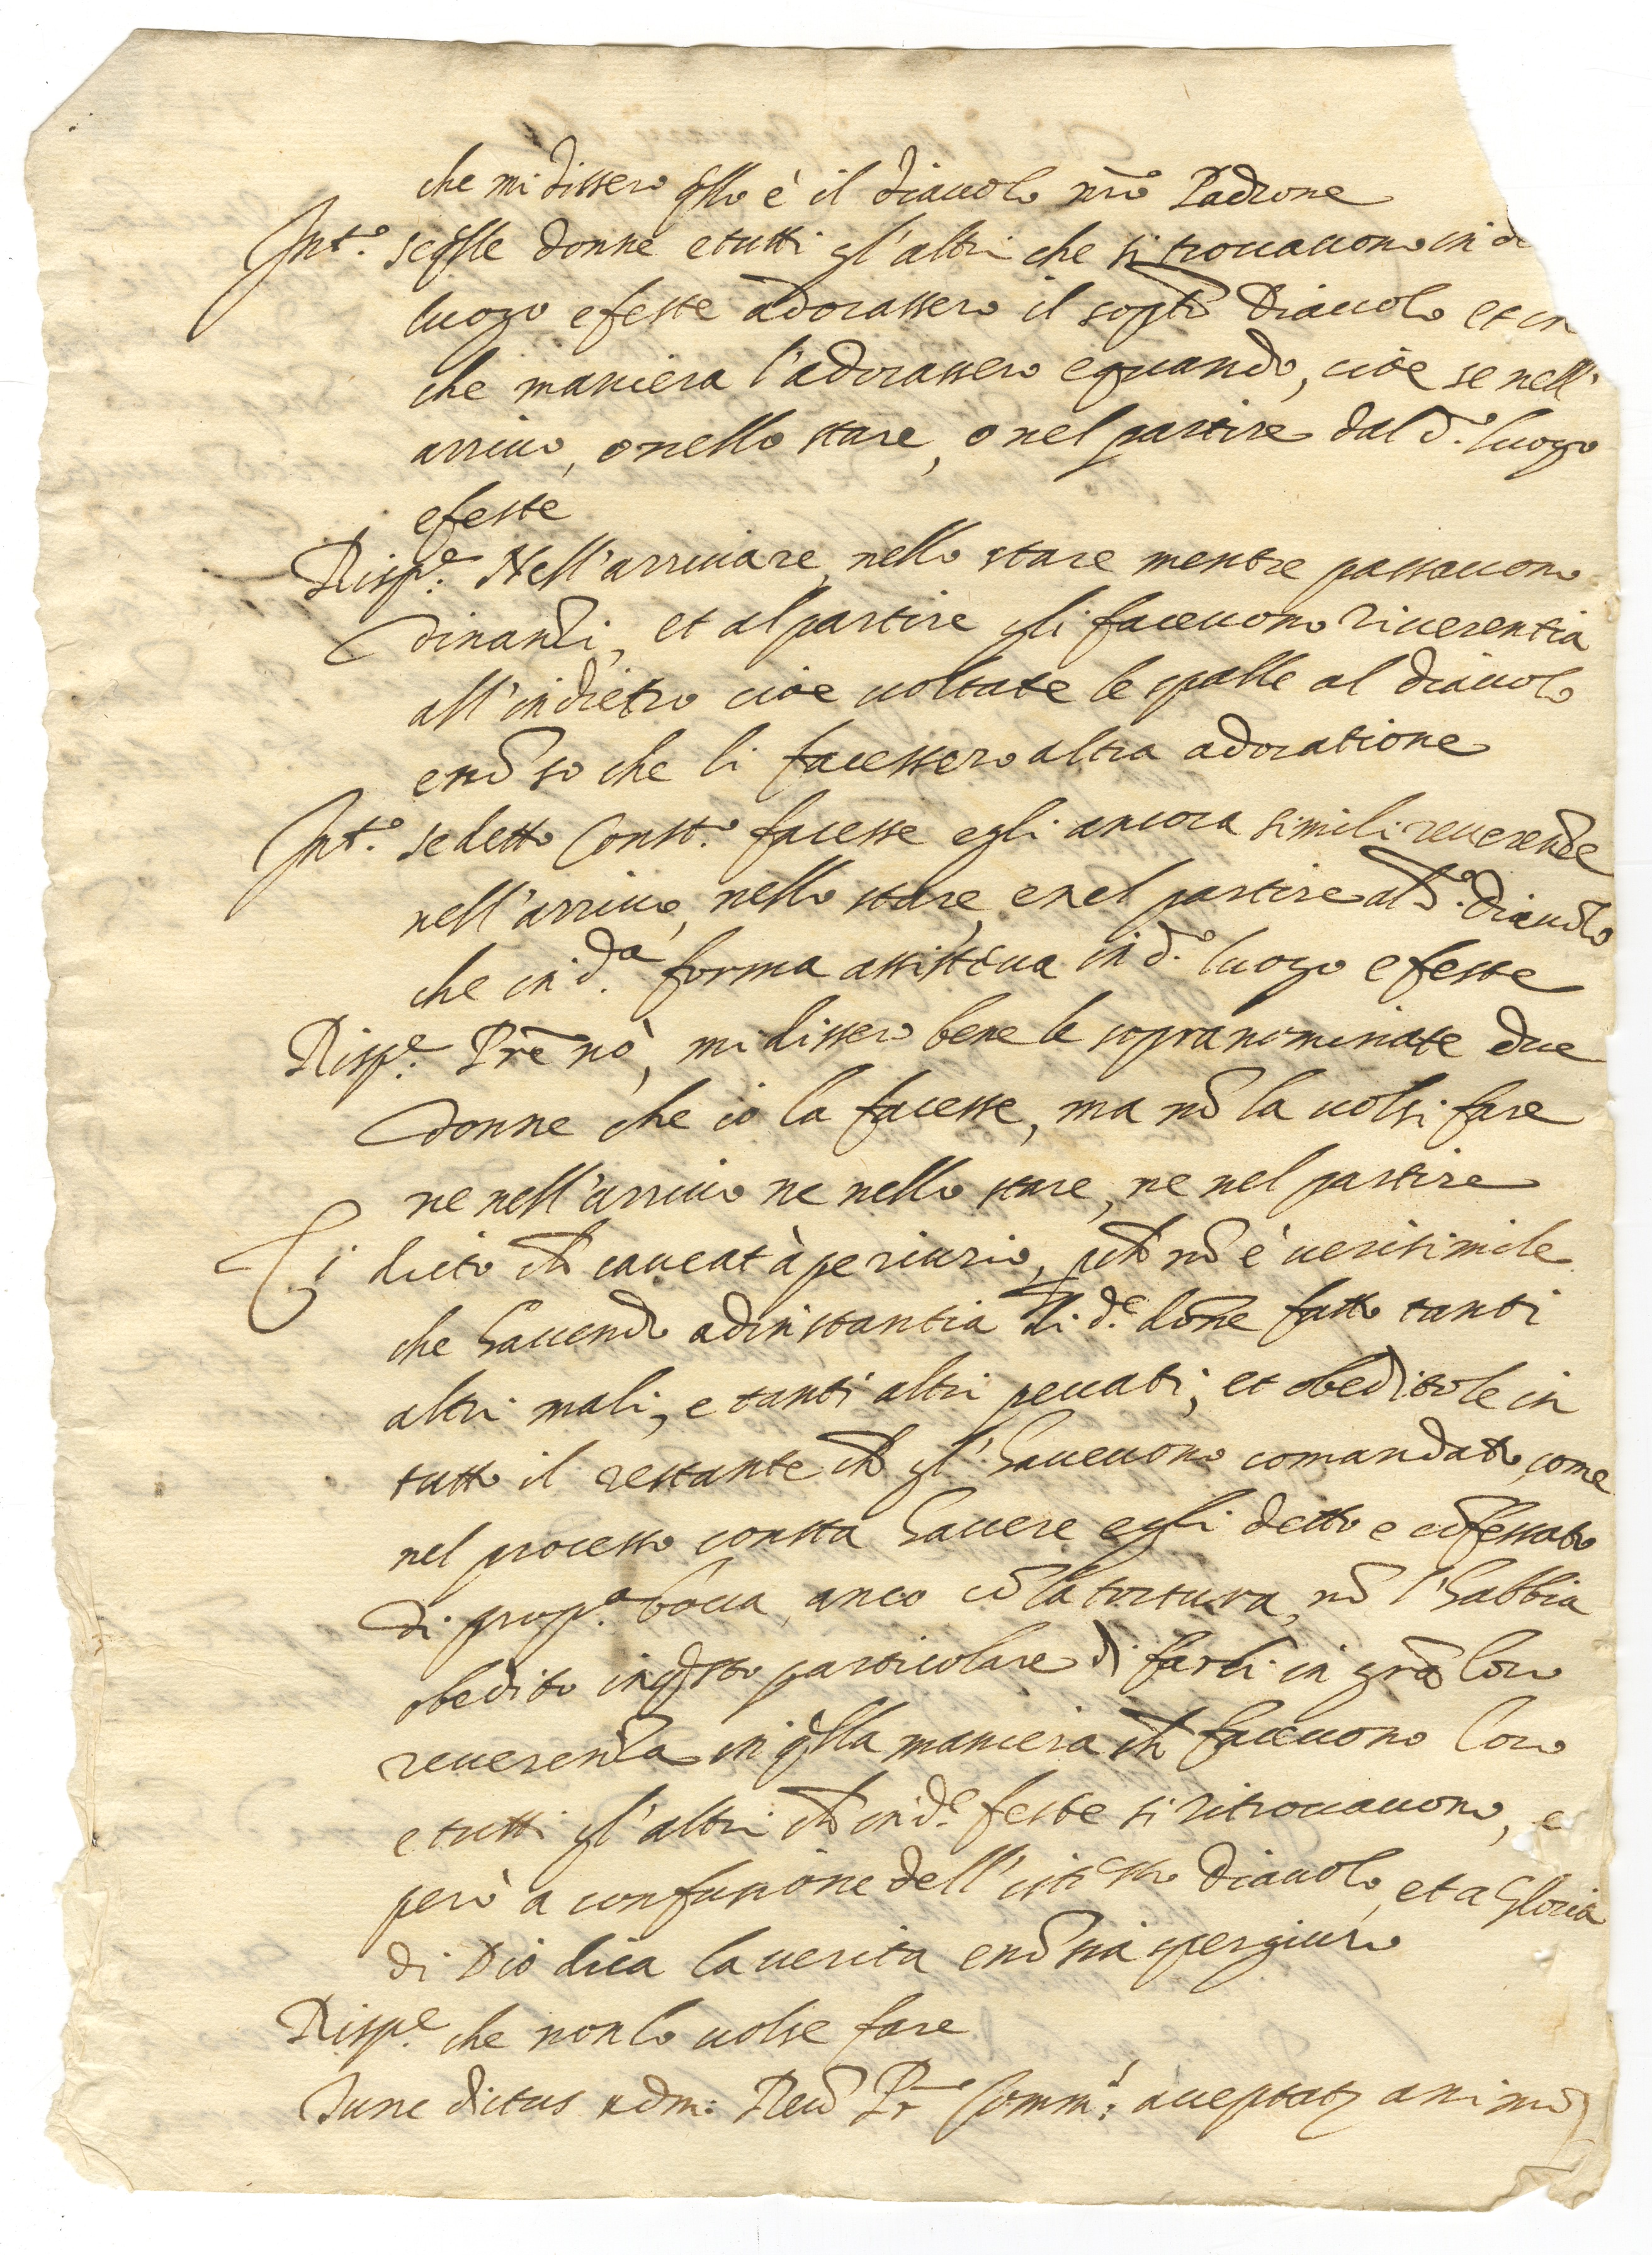 che mi dissero q̃llo è il diauolo nr̃o Padrone
Int.º se q̃lle donne e tutti gl'altri che si trouauono in d
luogo e feste adorassero il sop.to Diauolo et in
che maniera l'adorassero e quando, cioe se nell'
arriuo, o nello stare, o nel partire dal d.º luogo
e feste
Risp.e Nell'arriuare, nello stare mentre passauono
dinanzi, et al partire gli faceuono riuerentia
all'indietro cioe uoltate le spalle al diauolo
e nõ so che li facessero altra adoratione
Int.º se detto Const.º facesse egli ancora simili reuerenze
nell'arriuo, nello stare, e nel partire al d.º Diauolo
che in d.a forma assisteua in d.º luogo e feste
Risp.e Prẽ nò, mi dissero bene le sopranominate due
donne che io la facesse, ma nõ la uolsi fare
ne nell'arriuo ne nello stare, ne nel partire
Ei dicto ch̃ caueat à periurio, p̃ch̃ nõ è uerisimile
che hauendo ad instantia di d.e dõne fatto tanti
altri mali, e tanti altri peccati, et obeditole in
tutto il restante ch̃ gl'haueuono comandato, come
nel processo consta hauere egli detto e cõfessato
di prop.a bocca, anco cõ la tortura, nõ l'habbia
obedito in q̃sto particolare di farli in grã loro
reuerenza in q̃lla maniera ch̃ faceuono loro
e tutti gl'altri ch̃ in d.e feste si ritrouauono, e
però a confusione dell'istesso Diauolo, et a Gloria
di Dio dica la uerita e nõ sia spergiuro
Risp.e che non lo uolse fare
Tunc dictus adm: Reũ Pr Comm.s acceptatꝫ animõ